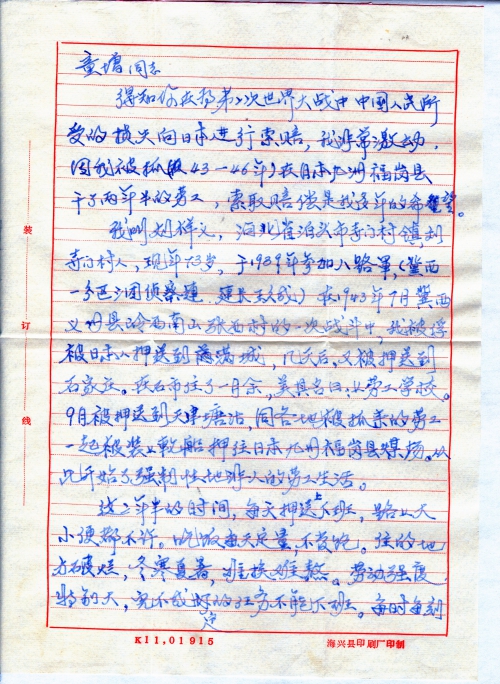 童增同志
得知你在为第二次世界大战中中国人民所
受的损失向日本进行索赔，我非常激动，
因我被抓（43—46年）在日本九州福岗县
干了两年半的劳工，索取赔偿是我多年的希望。
我叫刘祥义，河北省泊头市寺门村镇刘
寺门村人，现年73岁，于1939年参加八路军，（冀西
一分区三团侦察连，连长）在1943年7月冀西
县南山张村的一次战斗中，我被俘
被日本人押送到满城，几天后又被押送到
石家庄。在石市住了一月余，美其名曰：劳工学校。
9月被押送到天津塘沽，同各地被抓来的劳工
一起被装上船押往日本九州福岗县煤场。从
此开始了强制性地非人的劳工生活。
这二年半的时间，每天押送上下班，路上大
小便都不许。吃饭每天定量，不管饱。住的地
方破烂，冬寒夏暑，难挨难熬。劳动强度
特别大，完不成定的任务不能下班。每时每刻
装
订
线
K11,01915
海兴县印刷厂印制